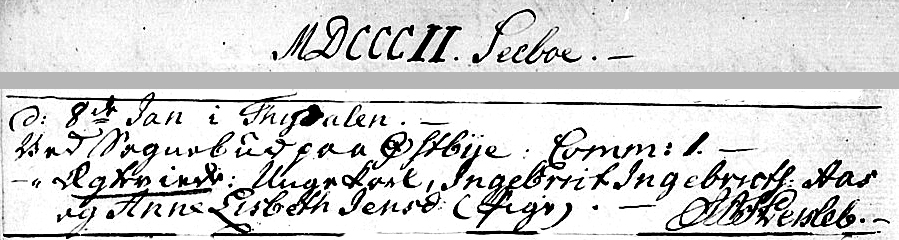 MDCCCII. Selboe. –
d: 8de Jan i Thydalen. –
Ved Sognebud paa Østbÿe: Comm: 1. –
– " Ægteviede: Unge Karl, Ingebrict Ingebricts: Aas
og Anne Lisbeth Jensd (Pige) . –